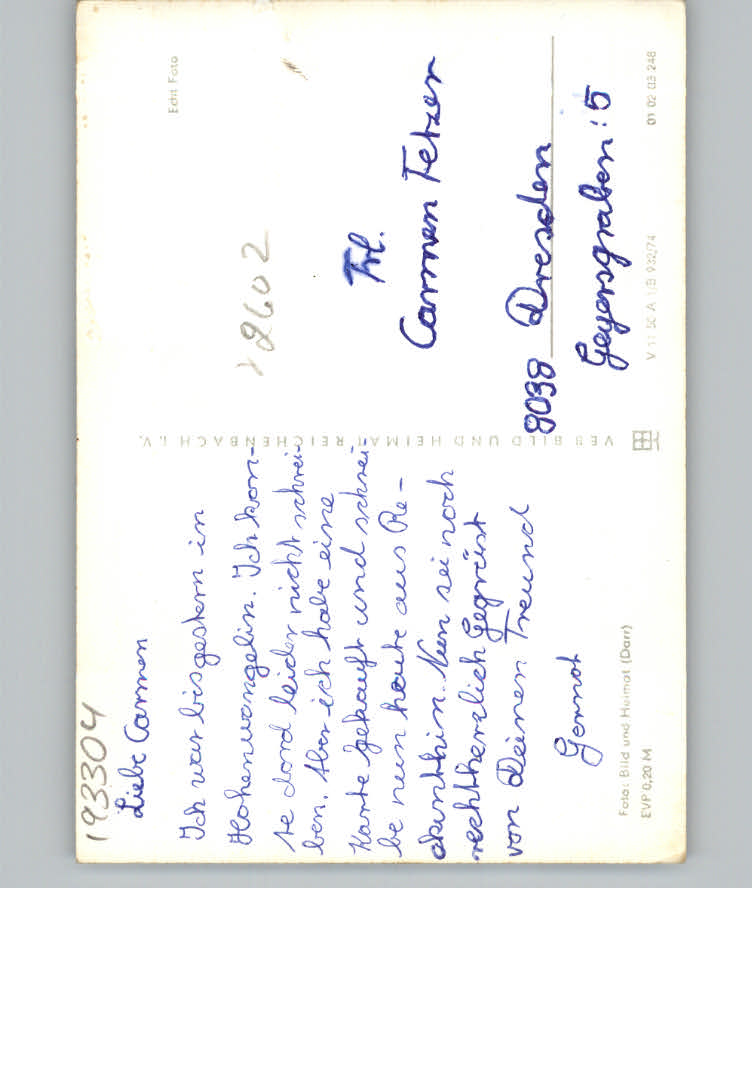 193304
Liebe Carmen
Ich war bis gestern in
Hohenwangelin. Ich kon-
te dord leider nicht schrei-
ben. Aber ich habe eine
Karte gekauft und schrei-
be nun heute aus Re-
nun sei noch
rechtherzlich Gegrüst
von Deinen Freund
Gernot
Foto: Bild und Heimat (Darr)
EVP 0,20 M
VEB BILD UND HEIMAT REICHENBACH I. V.
Echt Foto
2602
Frl.
Carmen Fetzer
8038 Dresden
Geyersgraben: 5
V 11 50 A 1/B 932/74
01 02 03 248